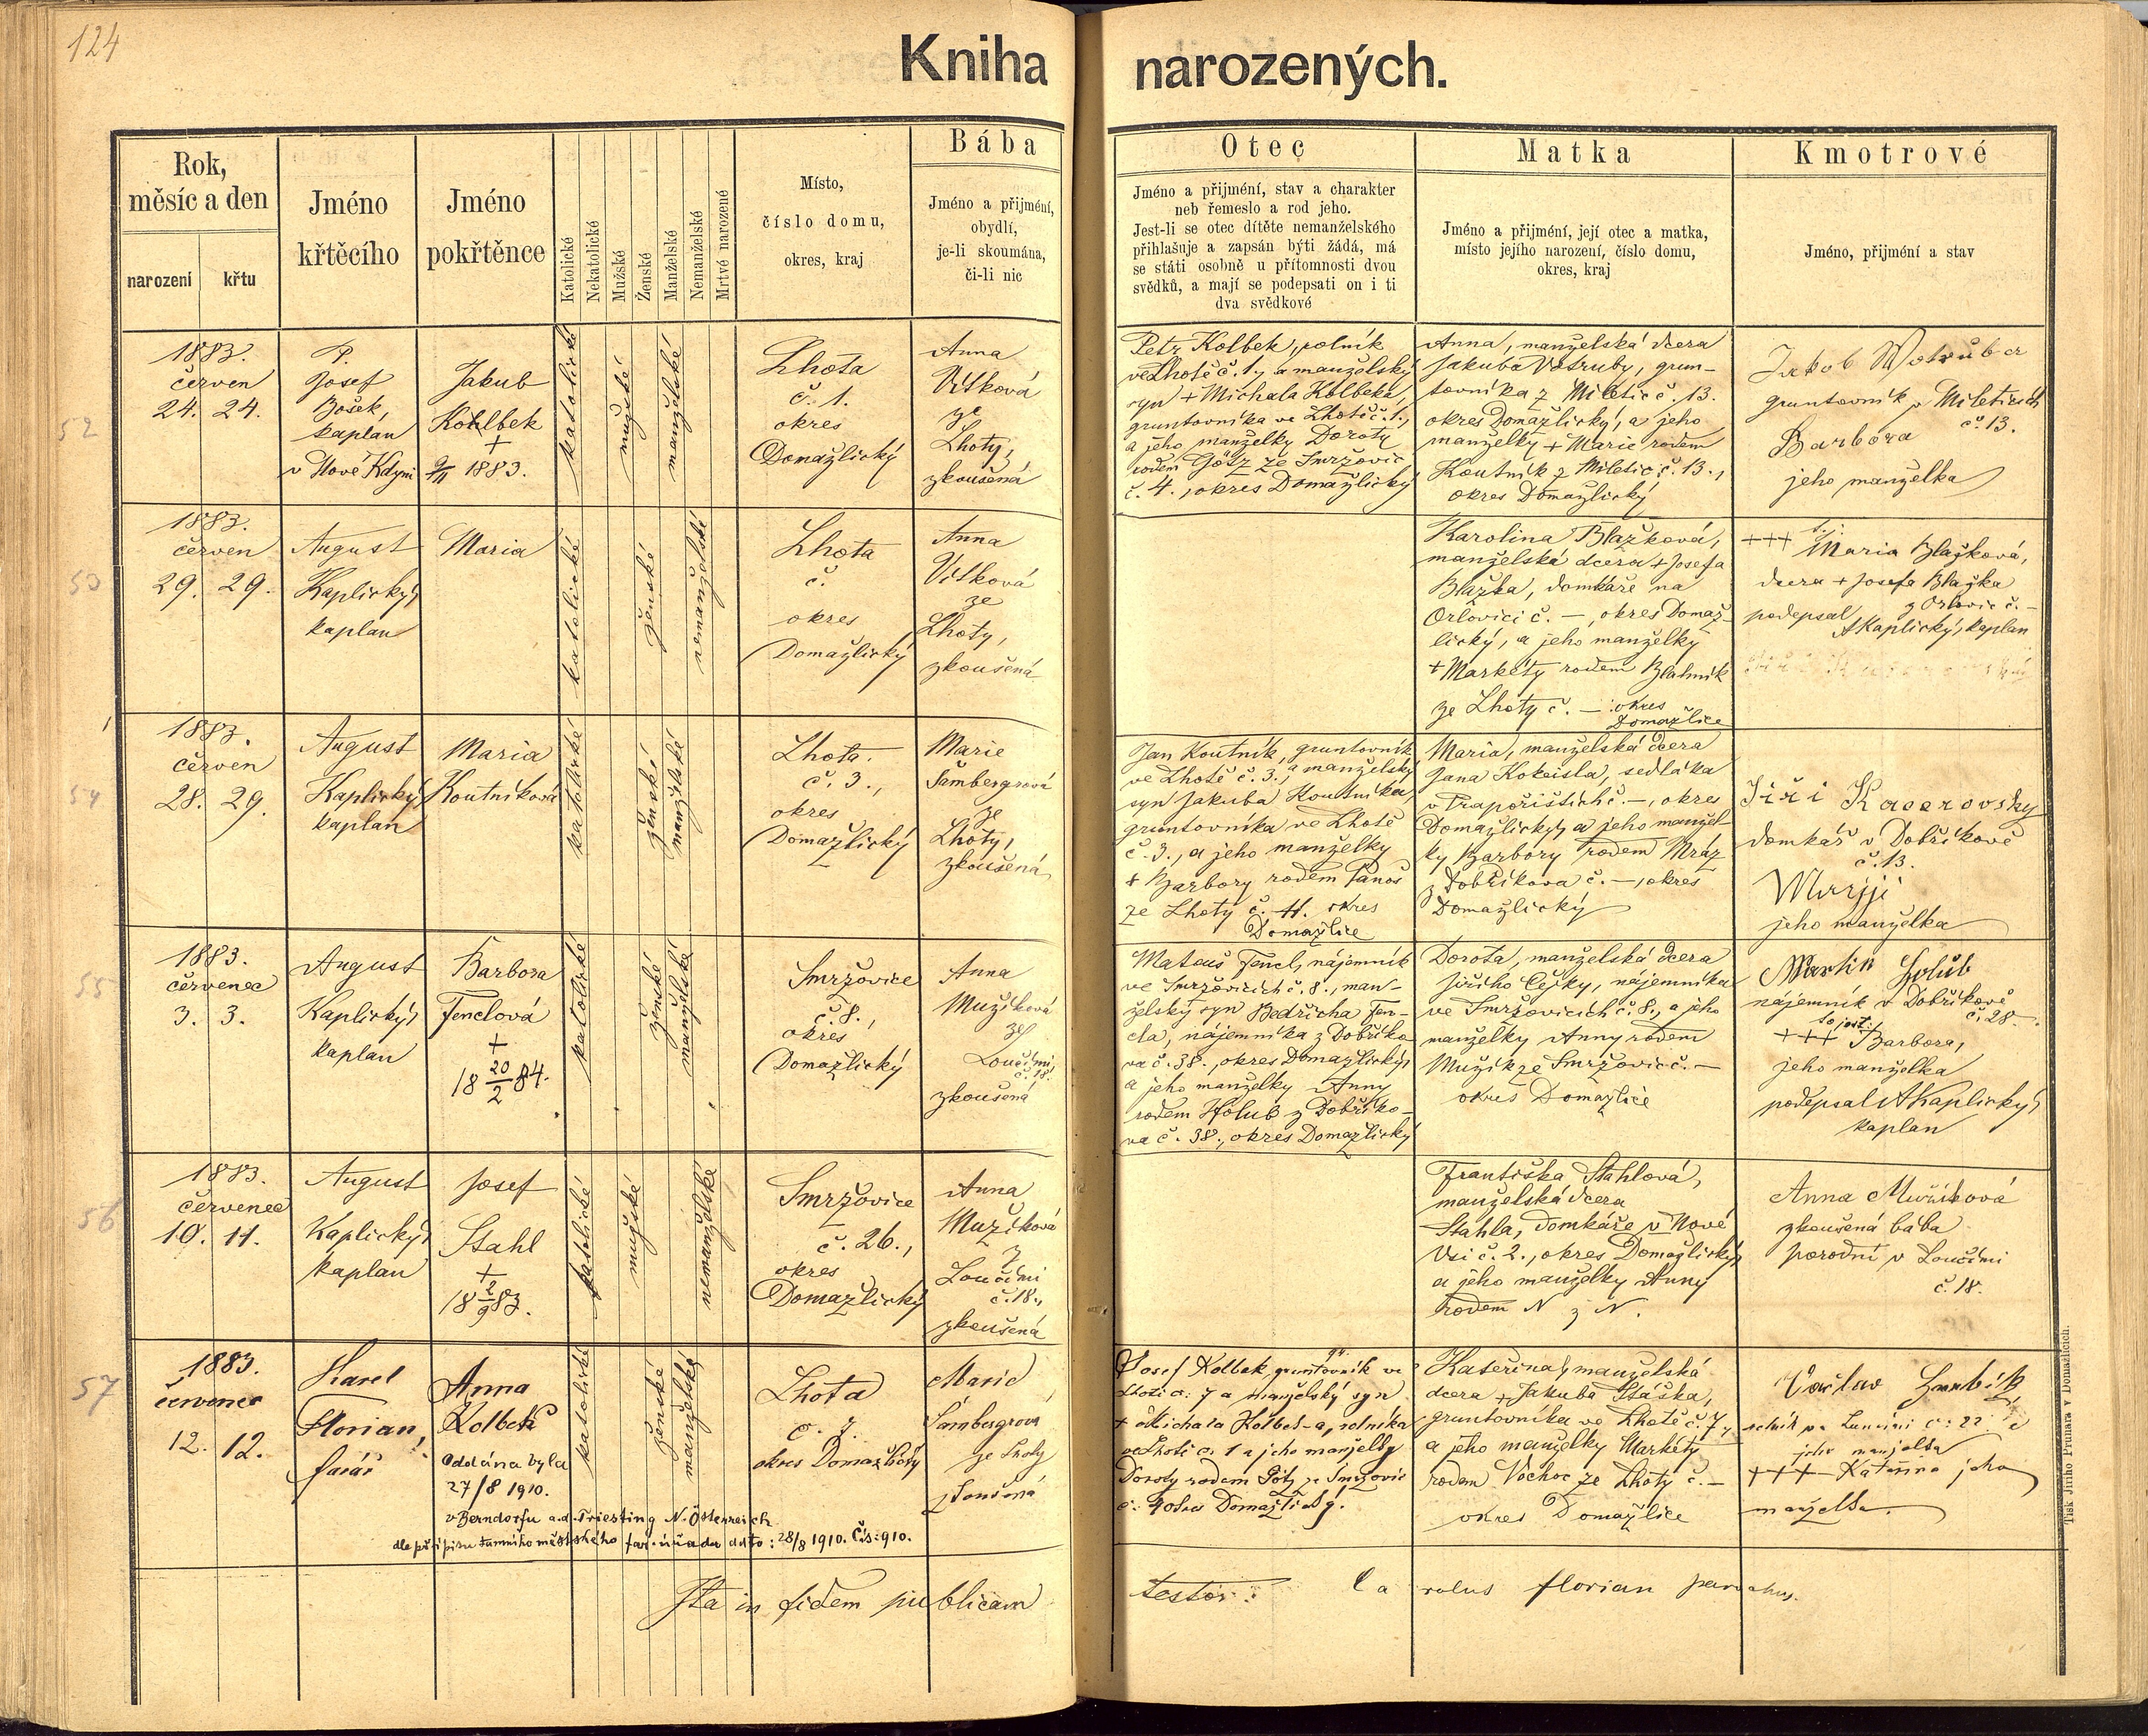 124
Kniha narozených.
Rok,
měsíc a den
narození
křtu
Jméno
křtěcího
Jméno
pokřtěnce
Katolické
Nekatolické
Mužské
Ženské
Manželské
Nemanželské
Mrtvě narozené
Místo,
číslo domu,
okres, kraj
Bába
Jméno a přijmení,
obydlí,
je-li skoumána,
či-li nic
Otec
Jméno a přijmení, stav a charakter
neb řemeslo a rod jeho.
Jest-li se otec dítěte nemanželského
přihlašuje a zapsán býti žádá, má
se státi osobně u přítomnosti dvou
svědků, a mají se podepsati on i ti
dva svědkové
Matka
Jméno a přijmení, její otec a matka,
místo jejího narození, číslo domu,
okres, kraj
Kmotrové
Jméno, přijmení a stav
52
1883.
červen
24. 24.
P.
Josef
Bošek,
kaplan
v Nové Kdyni
Jakub
Kohlbek
+
9/11 1883.
katolické
mužské
manželské
Lhota
č. 1.
okres
Domažlický
Anna
Vítková
ze
Lhoty,
zkoušená
Petr Kolbek, rolník
ve Lhotě č. 1, a manželský
syn + Michala Kolbeka,
gruntovníka ve Lhotě č. 1.,
a jeho manželky Doroty
rodem Götz ze Smržovic
č. 4., okres Domažlický
Anna, manželská dcera
Jakuba Votruby, grun-
tovníka z Miletic č. 13.
okres Domažlický, a jeho
manželky + Marie rodem
Koutník z Miletic č. 13.,
okres Domažlický
Jakob Wotruba
gruntovník v Mileticích
č. 13.
Barbora
jeho manželka
53
1883.
červen
29. 29.
August
Kaplický,
kaplan
Maria
katolické
ženské
nemanželské
Lhota
č.
okres
Domažlický
Anna
Vítková
ze
Lhoty,
zkoušená
Karolina Blažková,
manželská dcera + Josefa
Blažka, domkáře na
Orlovici č. —, okres Domaž-
lický, a jeho manželky
+ Markéty rodem Blahník
ze Lhoty č. — okres
Domažlice
+++ t.j.
Maria Blažková,
dcera + Josefa Blažka
z Orlovic č. —
podepsal
AKaplický, kaplan
54
1883.
červen
28. 29.
August
Kaplický,
kaplan
Maria
Koutníková
katolické
ženské
manželské
Lhota.
č. 3.,
okres
Domažlický
Marie
Šambergrová
ze
Lhoty,
zkoušená
Jan Koutník, gruntovník
ve Lhotě č. 3., a manželský
syn Jakuba Koutníka,
gruntovníka ve Lhotě
č. 3., a jeho manželky
+ Barbory rodem Panoš
ze Lhoty č. 11. okres
Domažlice
Maria, manželská dcera
Jana Kokeisla, sedláka
v Trapořištích č. —, okres
Domažlický, a jeho manžel-
ky Barbory rodem Mráz
z Dobříkova č. —, okres
Domažlický
Jiři Kacerovsky
domkář v Dobříkově
č. 13.
Marjji
jeho manželka
55
1883.
červenec
3. 3.
August
Kaplický,
kaplan
Barbora
Fenclová
+
18 20/2 84.
katolické
ženské
manželské
Smržovice
č. 8.,
okres
Domažlický
Anna
Mužíková
z
Loučimi
č. 18.
zkoušená
Mateuš Fencl, nájemník
ve Smržovicích č. 8., man-
želský syn Bedřicha Fen-
cla, nájemníka z Dobříko-
va č. 38., okres Domažlický,
a jeho manželky Anny
rodem Holub z Dobříko-
va č. 38., okres Domažlický
Dorota, manželská dcera
Jiřího Cejky, nájemníka
ve Smržovicích č. 8., a jeho
manželky Anny rodem
Mužík ze Smržovic č. —
okres Domažlice
Martin Holub
nájemník v Dobříkově
č. 28.
to jest:
+++ Barbora,
jeho manželka
podepsal AKaplický,
kaplan
56
1883.
červenec
10. 11.
August
Kaplický,
kaplan
Josef
Stahl
+
18 2/9 83.
katolické
mužské
nemanželské
Smržovice
č. 26.,
okres
Domažlický
Anna
Mužíková
z
Loučimi
č. 18.,
zkoušená
Františka Stahlová,
manželská dcera
Stahla, domkáře v Nové
Vsi č. 2., okres Domažlický,
a jeho manželky Anny
rodem N z N.
Anna Mužíková
zkoušená bába
porodní v Loučimi
č. 18.
57
1883.
červenec
12. 12.
Karel
Florian,
farář
Anna
Kolbek
Oddána byla
27/8 1910.
v Berndorfu a.d. Triesting N. Österreich
dle přípisu tamního městského far. úřadu ddto: 28/8 1910. Čís: 910.
katolické
ženské
manželské
Lhota
č. 7.
okres Domažlický
Marie
Šambergrova
ze Lhoty
zkoušená
Josef Kolbek, gruntovník ve
Lhotě č: 7 a manželský syn
+ Michala Kolbek-a, rolníka
ve Lhotě č. 1 a jeho manželky
Doroty rodem Götz ze Smržovic
č: 4 okres Domažlický.
Kateřina, manželská
dcera + Jakuba Stáška,
gruntovníka ve Lhotě č. 7,
a jeho manželky Markéty
rodem Vochoc ze Lhoty č. —
okres Domažlice
Václav
rolník
jeho manželka
+++ Kateřina jeho
manželka.
Ita in fidem publicam testor: Carolus Florian parochus.
Tisk Jiřího Prunara v Domažlicích.